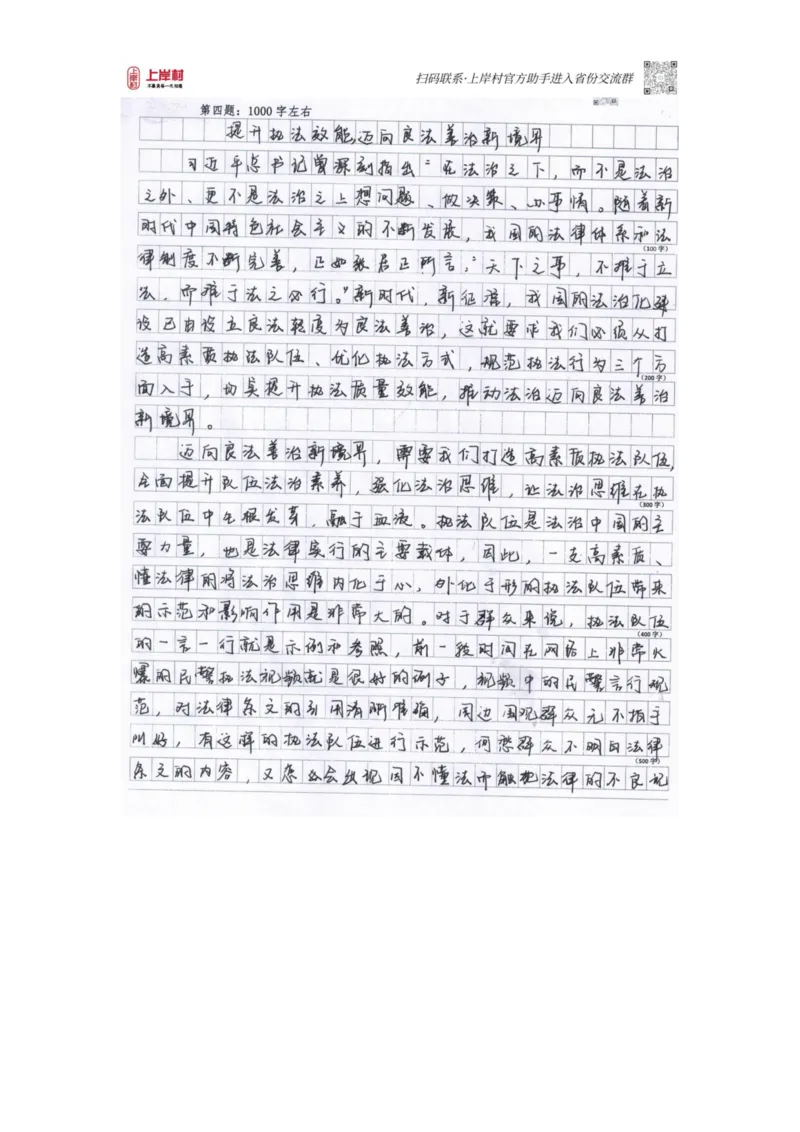 上岸村
上岸村
不最具备一代知遇
扫码联系·上岸村官方助手进入省份交流群
第四题：1000字左右
提升执法效能,迈向良法善治新境界
习近平总书记曾深刻指出“在法治之下，而不是法治
之外、更不是法治之上想问题、做决策、办事情。随着新
时代中国特色社会主义的不断发展，我国的法律体系和法
（100字）
律制度不断完善，正如张居正所言：“天下之事，不难于立
法，而难于法之必行。”新时代，新征程，我国的法治化建
设已由设立良法转变为良法善治，这就要求我们必须从打
造高素质执法队伍、优化执法方式，规范执法行为三个方
（200字）
面入手，切实提升执法质量效能，推动法治迈向良法善治
新境界。
迈向良法善治新境界，需要我们打造高素质执法队伍，
全面提升队伍法治素养，强化法治思维，让法治思维在执
（300字）
法队伍中生根发芽，融于血液。执法队伍是法治中国的主
要力量，也是法律实行的主要载体，因此，一支高素质、
懂法律的将法治思维内化于心，外化于形的执法队伍带来
的示范和影响作用是非常大的。对于群众来说，执法队伍
（400字）
的一言一行就是示例和参照，前一段时间在网络上非常火
爆的民警执法视频就是很好的例子，视频中的民警言行规
范，对法律条文的引用清晰准确，周边围观群众无不拍手
叫好，有这样的执法队伍进行示范，何愁群众不明白法律
（500字）
条文的内容，又怎么会出现因不懂法而触犯法律的不良现